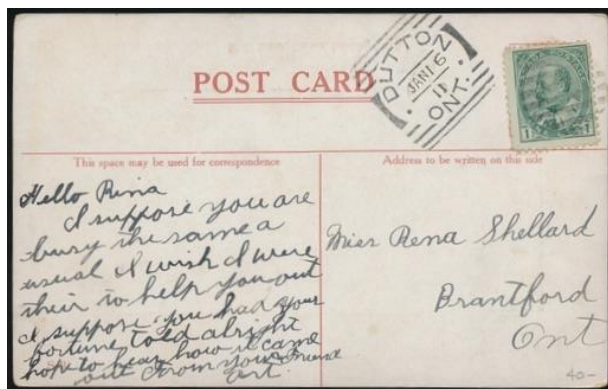 POST CARD
DUTTON
JAN 16
11
ONT.
This space may be used for correspondence
Address to be written on this side
Hello Rina
I suppose you are
busy the same a
usual I wish I were
their to help you out
I suppose you had your
fortune told alright
hope to hear how it came
out From your Friend
Art.
Miss Rena Shellard
Brantford
Ont
40-